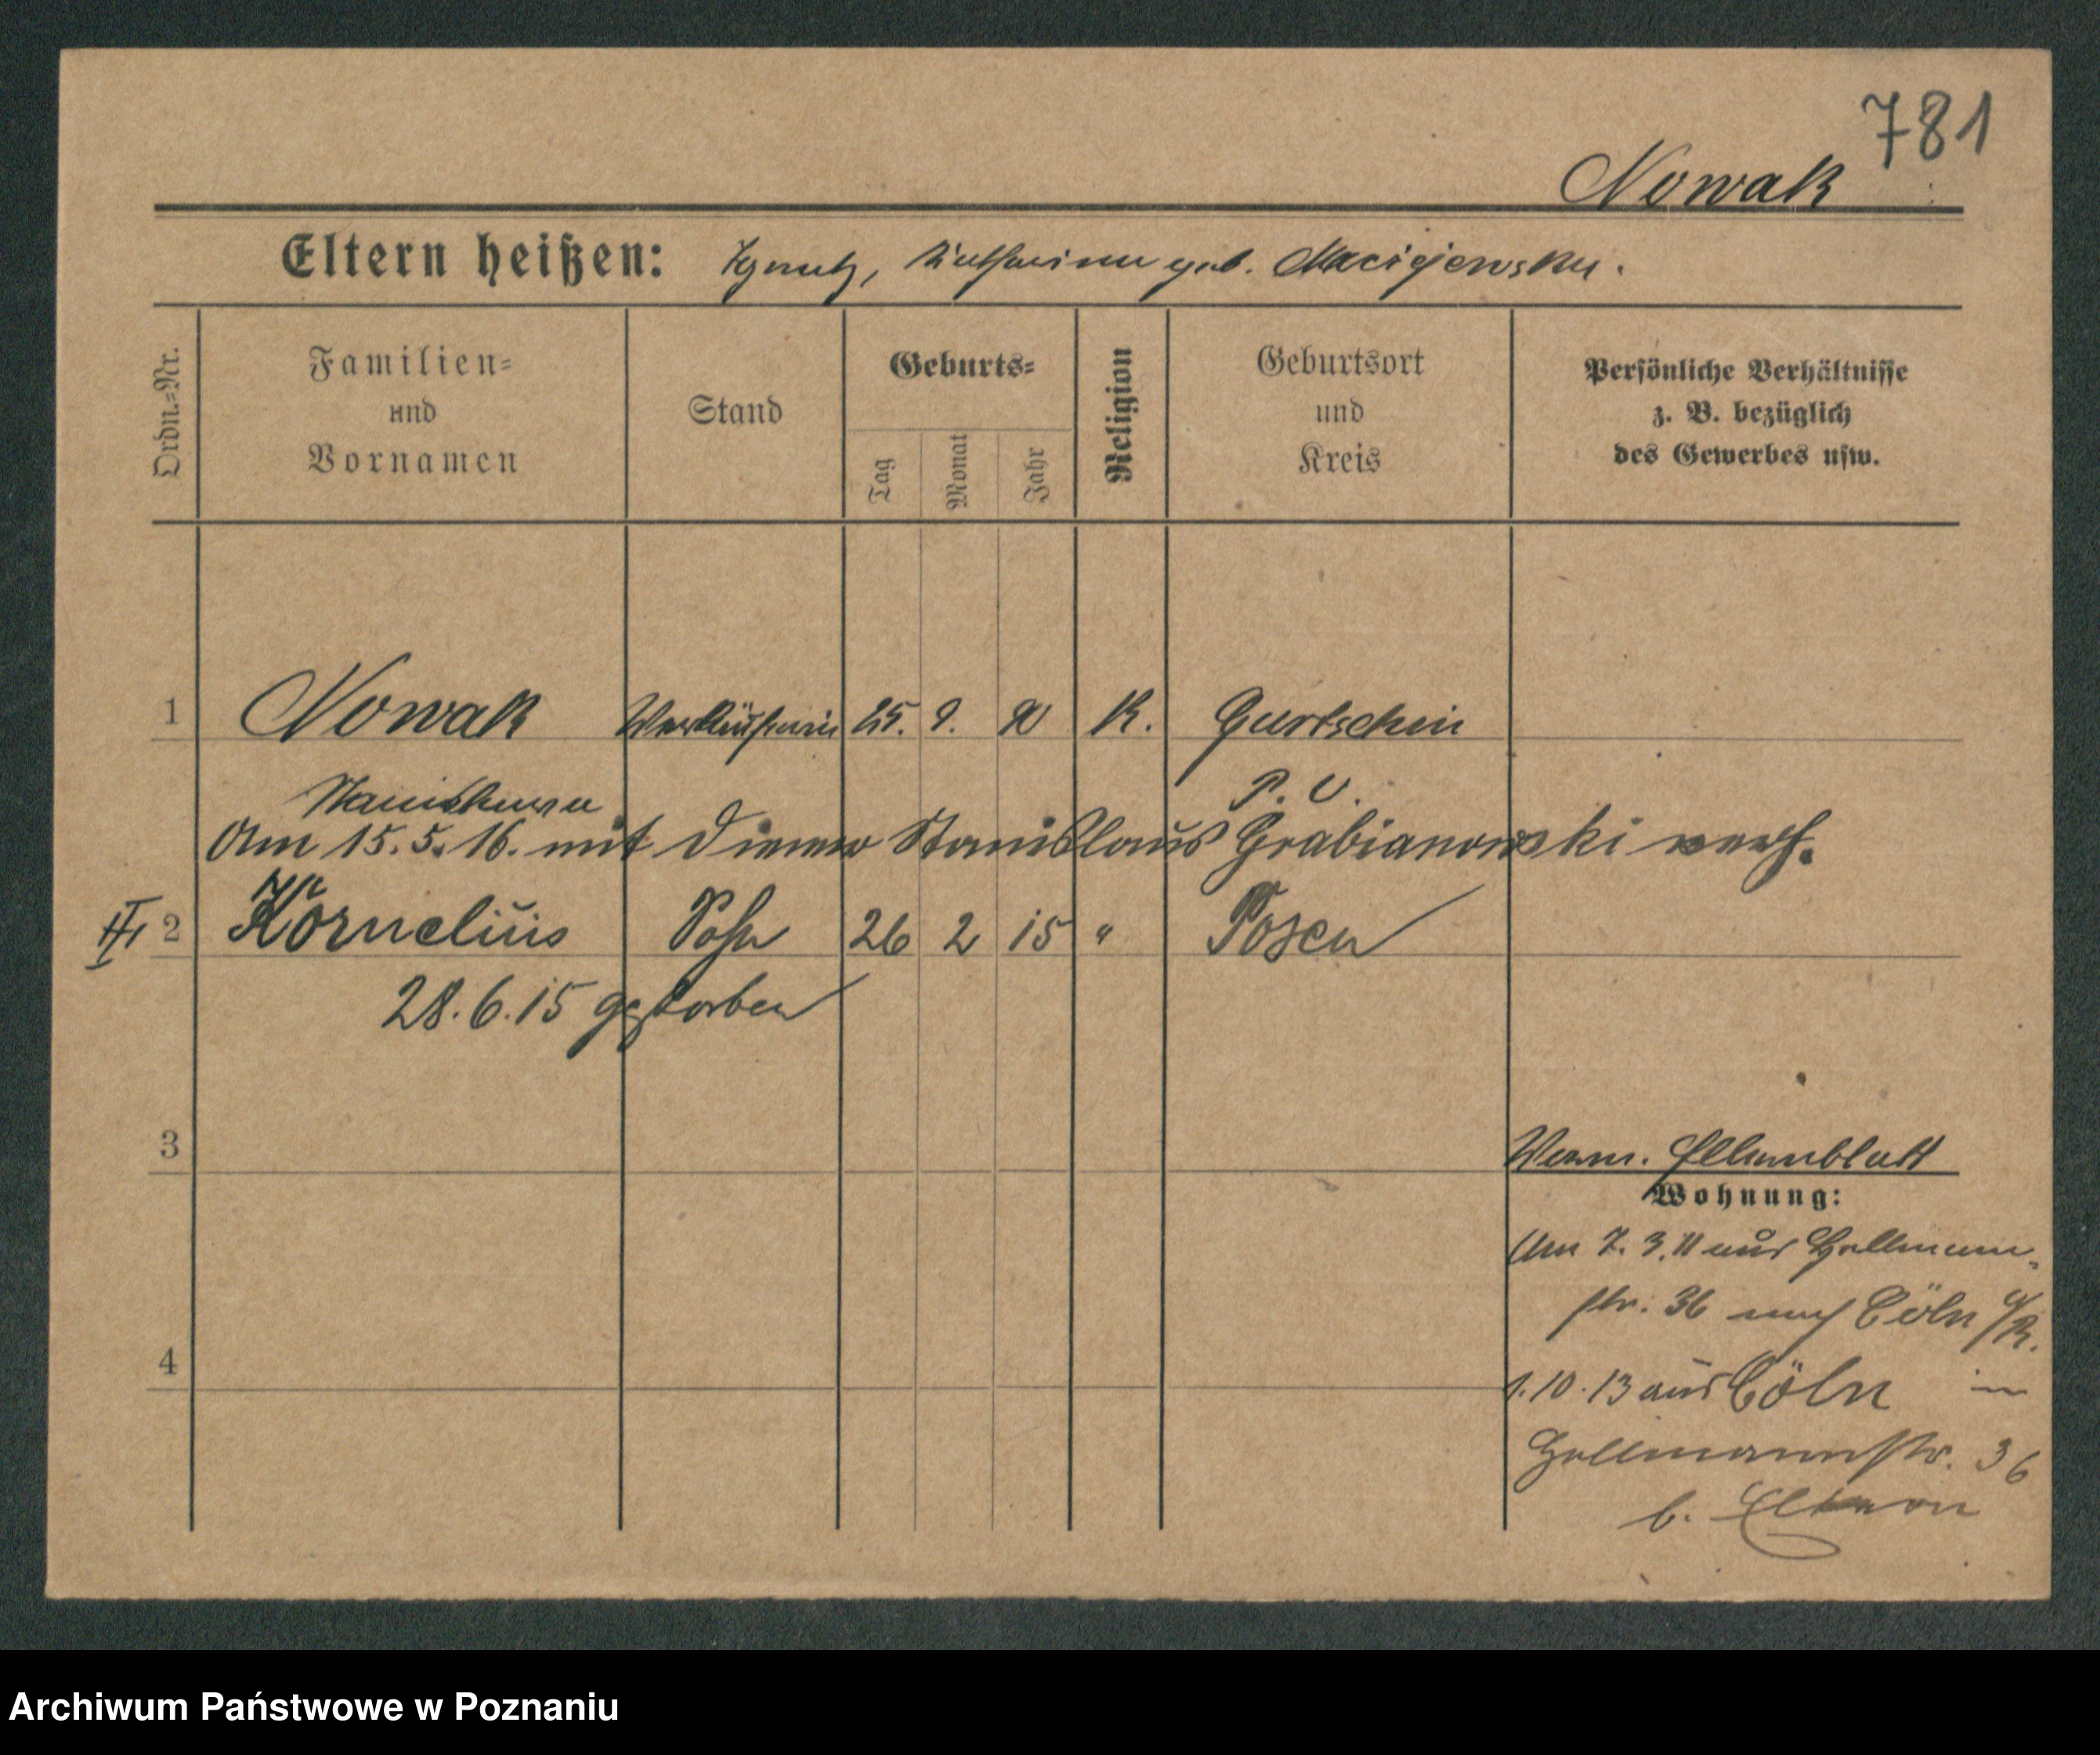 781
Nowak
Eltern heißen: Ignatz, Katharina geb. Maciejewska.
Ordn.-Nr.
Familien-
und
Vornamen
Stand
Geburts-
Tag
Monat
Jahr
Religion
Geburtsort
und
Kreis
Persönliche Verhältnisse
z. B. bezüglich
des Gewerbes usw.
1 Nowak Verkäuferin 25. 9. 90 K. Gurtschin
Stanislawa P. O.
Am 15. 5. 16. mit Diener Stanislaus Grabianowski verh.
II 2 Kornelius Sohn 26 2 15 " Posen
28. 6. 15 gestorben
3
Verm. Elternblatt
Wohnung:
Am 7. 3. 11 aus Hellmann-
str. 36 nach Cöln a/R.
4
1. 10. 13 aus Cöln in
Hellmannstr. 36
b. Eltern
Archiwum Państwowe w Poznaniu